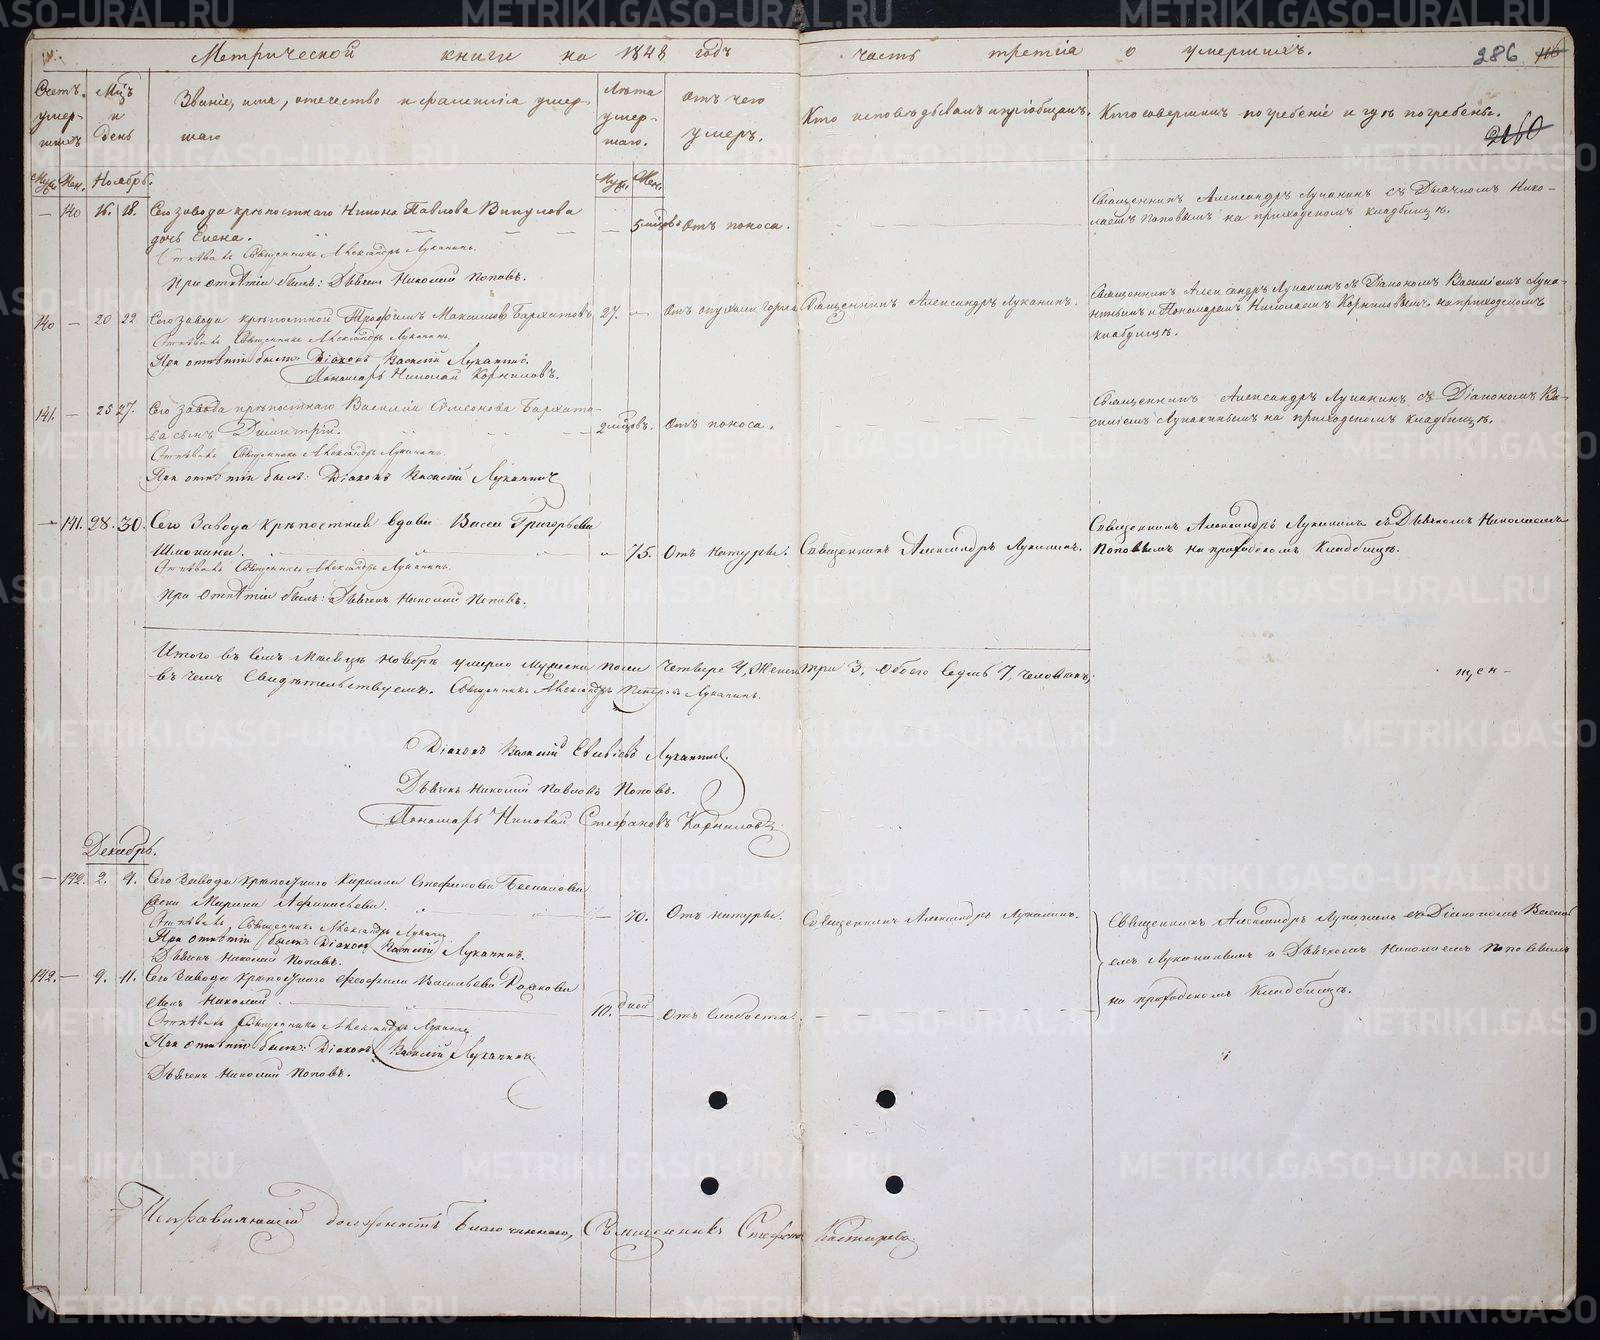 Метрической книги на 1848 годъ часть третiа о умершихъ. 286
Счетъ умер-шихъ
Мцъ и день
Званiе, имя, отечество и фамилiа умер-шаго
Лѣта умер-шаго.
Отъ чего умеръ.
Кто исповѣдывалъ и прiобщалъ.
Кто совершилъ погребенiе и гдѣ погребены.
2160
Муж. Жен. Ноябрь. Муж. Жен.
— 140 16. 18. Сего завода крѣпостнаго Никона Павлова Викулова
дочь Елена. — 5 мцовъ Отъ поноса.
Священникъ Александръ Луканинъ съ Дьячкомъ Нико-
лаемъ Поповымъ на приходскомъ кладбищѣ.
Отпѣвалъ Священникъ Александръ Луканинъ.
При отпѣтiи былъ: Дьячекъ Николай Поповъ.
140 — 20 22 Сего завода крѣпостной Трофимъ Максимовъ Бархатовъ 27. — Отъ опухоли горла Священникъ Александръ Луканинъ.
Священникъ Александръ Луканинъ съ Дiакономъ Василiемъ Лука-
нинымъ и Пономаремъ Николаемъ Корниловымъ на приходскомъ
кладбищѣ.
Отпѣвалъ Священникъ Александръ Луканинъ.
При отпѣтiи были: Дiаконъ Василiй Луканинъ.
Пономарь Николай Корниловъ.
141. — 25 27. Сего завода крѣпостнаго Василiя Симеонова Бархато-
ва сынъ Димитрiй. 2 мцовъ. — Отъ поноса.
Священникъ Александръ Луканинъ съ Дiакономъ Ва-
силiемъ Луканинымъ на приходскомъ кладбищѣ.
Отпѣвалъ Священникъ Александръ Луканинъ.
При отпѣтiи былъ: Дiаконъ Василiй Луканинъ
— 141. 28. 30. Сего Завода крѣпостная вдова Васса Григорьева
— 75. Отъ натуры. Священникъ Александръ Луканинъ.
Священникъ Александръ Луканинъ съ Дьячкомъ Николаемъ
Поповымъ на приходскомъ Кладбищѣ.
Отпѣвалъ Священникъ Александръ Луканинъ.
При Отпѣтiи былъ: Дьячекъ Николай Поповъ.
Итого въ семъ Мѣсяцѣ Ноябрѣ умерло Мужеска пола четыре 4, Женска три 3, Обоего Семь 7, человѣкъ;
въ чемъ Свидѣтельствуемъ. Священникъ Александръ Петровъ Луканинъ.
Дiаконъ Василiй Луканинъ.
Дьячекъ Николай Павловъ Поповъ.
Пономарь Николай Стефановъ Корниловъ
Декабрь.
— 142. 2. 4. Сего Завода Крѣпостнаго Кирилла Стефанова Беспалова
жена Марина Афанасьева. — 70. Отъ натуры. Священникъ Александръ Луканинъ.
Священникъ Александръ Луканинъ съ Дiакономъ Васили-
емъ Луканинымъ и Дьячкомъ Николаемъ Поповымъ
на приходскомъ Кладбищѣ.
Отпѣвалъ Священникъ Александръ Луканинъ
При отпѣтiи были: Дiаконъ Василiй Луканинъ.
Дьячекъ Николай Поповъ.
142. — 9. 11. Сего Завода Крѣпостнаго Феофила Васильева
сынъ Николай. 10. дней — Отъ слабости.
Отпѣвалъ Священникъ Александръ Луканинъ
При Отпѣтiи были: Дiаконъ Василiй Луканинъ.
Дьячекъ Николай Поповъ.
Исправляющiй должность Благочиннаго, Священникъ Стефанъ
METRIKI.GASO-URAL.RU